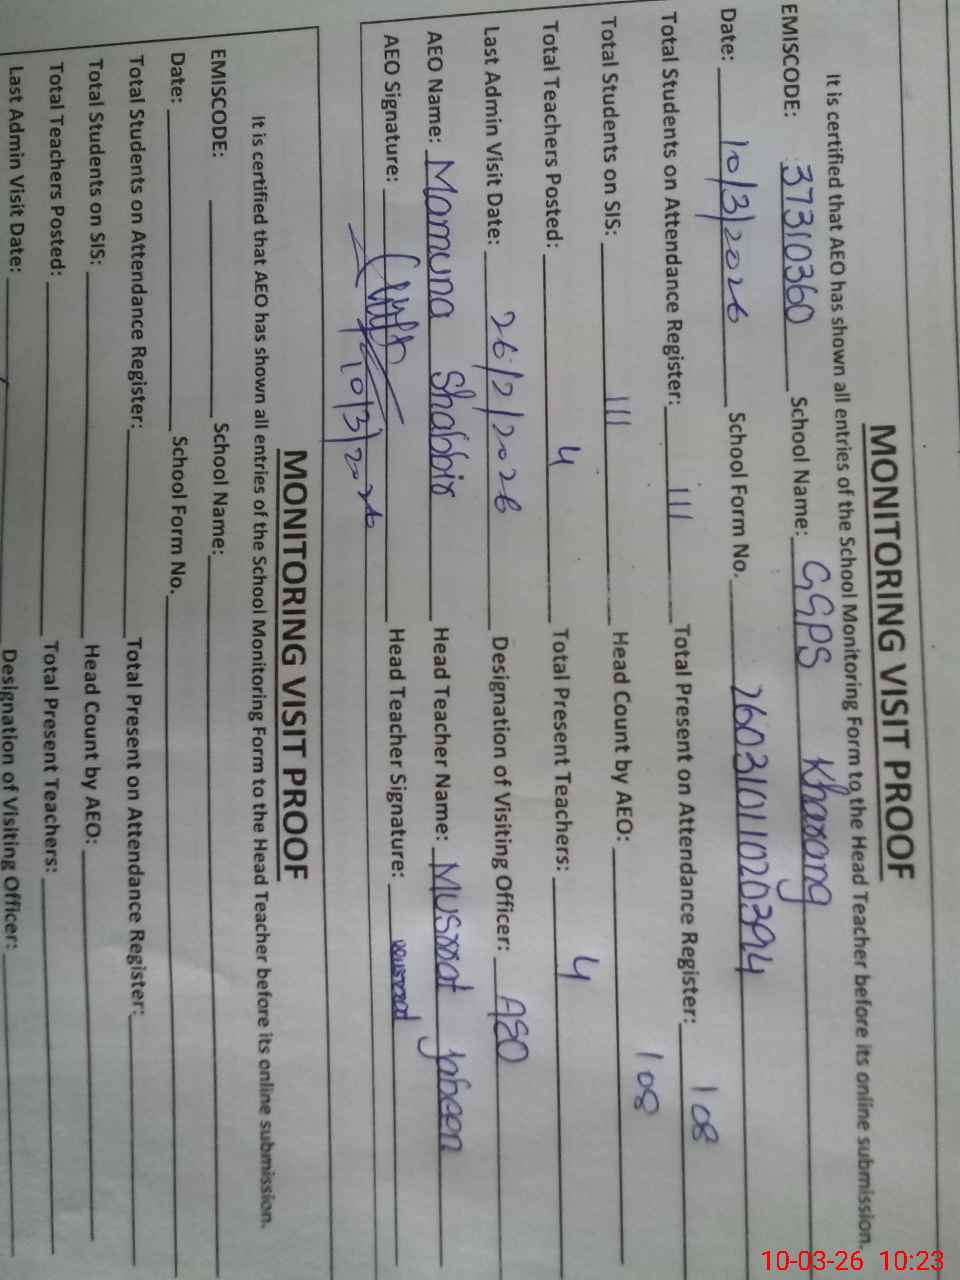 MONITORING VISIT PROOF
It is certified that AEO has shown all entries of the School Monitoring Form to the Head Teacher before its online submission.
EMISCODE: 37310360 School Name: GGPS Kharang
Date: 10/3/2026 School Form No. 26031011020394
Total Students on Attendance Register: 111 Total Present on Attendance Register: 108
Total Students on SIS: 111 Head Count by AEO: 108
Total Teachers Posted: 4 Total Present Teachers: 4
Last Admin Visit Date: 26/2/2026 Designation of Visiting Officer: AEO
AEO Name: Mamuna Shabbir Head Teacher Name: Musrrat Jabeen
AEO Signature: Head Teacher Signature:
10/3/2026
MONITORING VISIT PROOF
It is certified that AEO has shown all entries of the School Monitoring Form to the Head Teacher before its online submission.
EMISCODE: School Name:
Date: School Form No.
Total Students on Attendance Register: Total Present on Attendance Register:
Total Students on SIS: Head Count by AEO:
Total Teachers Posted: Total Present Teachers:
Last Admin Visit Date: Designation of Visiting Officer:
10-03-26 10:23